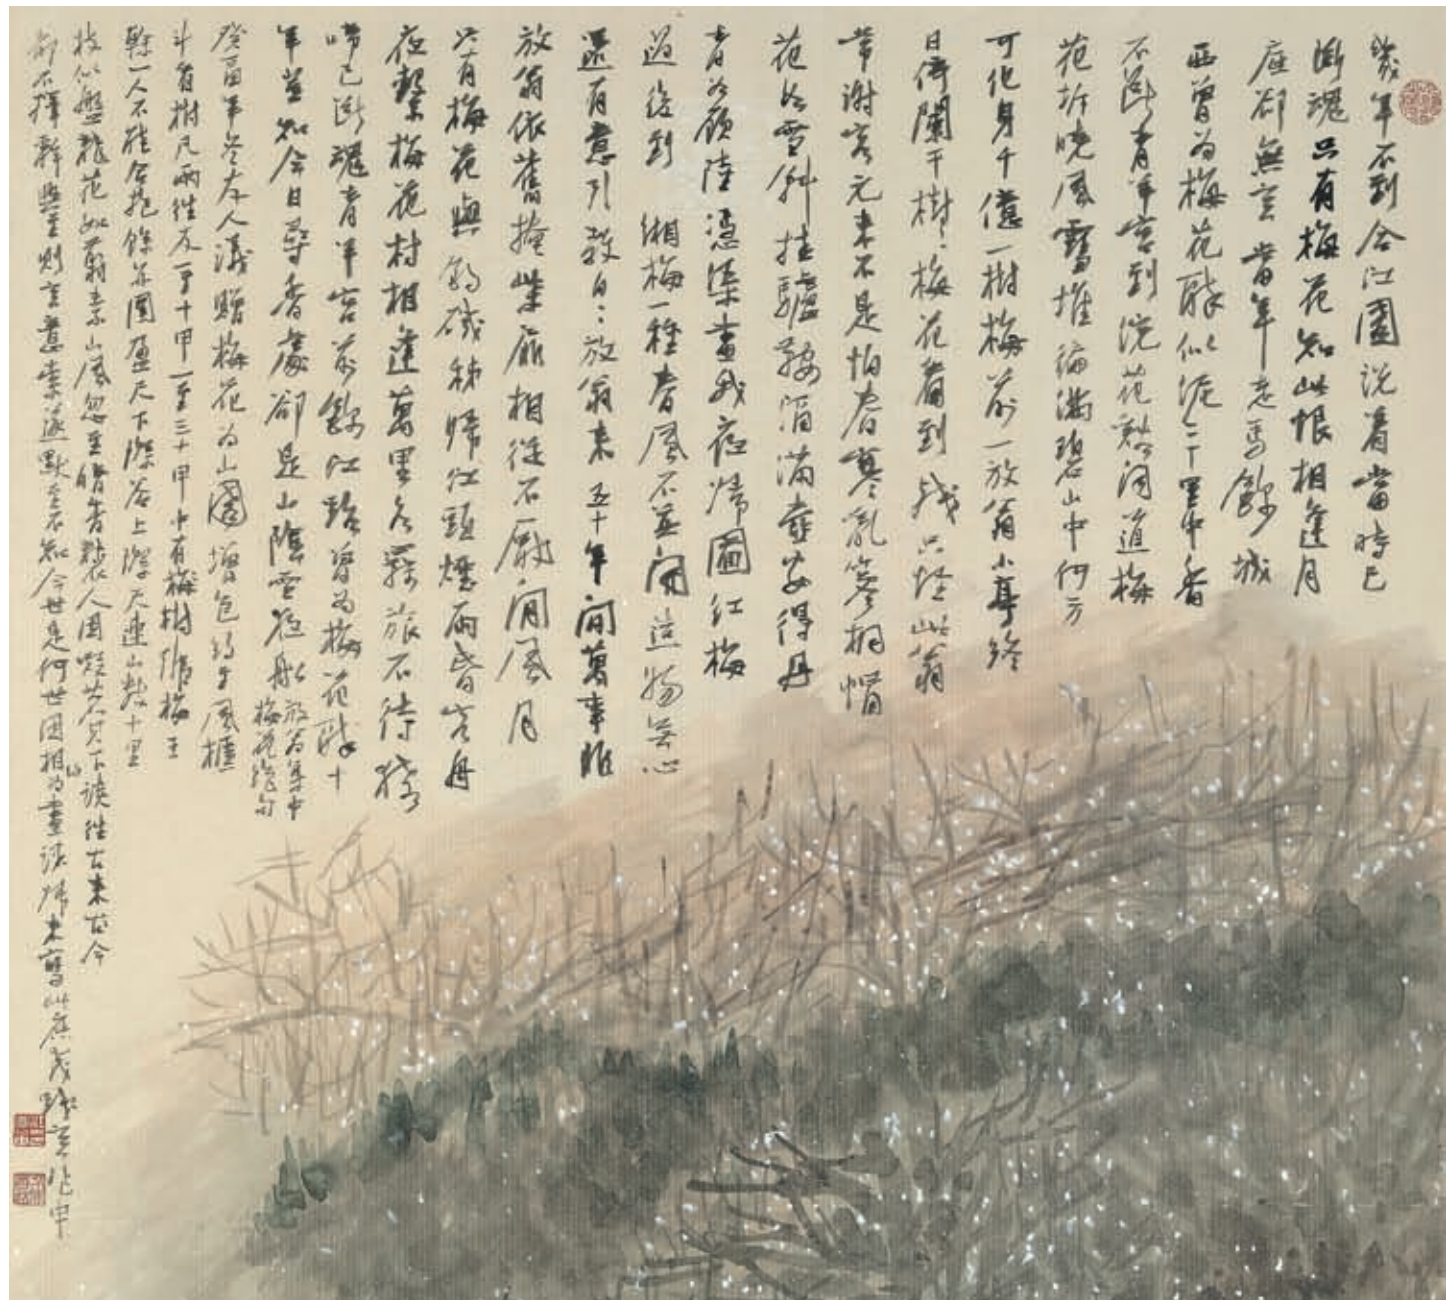 幾年不到合江園說着當時已
斷魂只有梅花知此恨相逢月
底却無言當年走馬錦城
西曾為梅花醉似泥二十里中香
不斷青羊宮到浣花谿聞道梅
花坼曉風雪堆徧滿碧山中何方
可化身千億一樹梅前一放翁小亭終
日倚闌干樹〻梅花看到殘只怪此翁
常謝客元來不是怕春寒亂篸桐帽
花如雪斜挂驢鞍酒滿壺安得丹
青如顧陸憑渠畫我夜歸圖紅梅
過後到緗梅一種春風不並開造物無心
還有意引教日〻放翁來五十年間萬事非
放翁依舊掩柴扉相從不厭閒風月
只有梅花與釣磯秭歸江頭煙雨昏客舟
夜繫梅花村相逢萬里各羇旅不待猿
啼已斷魂青羊宮前錦江路曾為梅花醉十
年豈知今日尋香處却是山陰雪夜船
放翁集中
梅花絕句
癸酉年冬友人議贈梅花為山園增色約于風櫃
斗看樹凡兩往反一至十甲一至三十甲中有梅樹張梅王
幹一人不能合抱餘亦圍盈尺下際谷上際天連山數十里
枝似盤龍花如剪素山風忽至暗香襲人因嘆其下讀往古來古今
今世是何世因相為畫讀歸來寫此